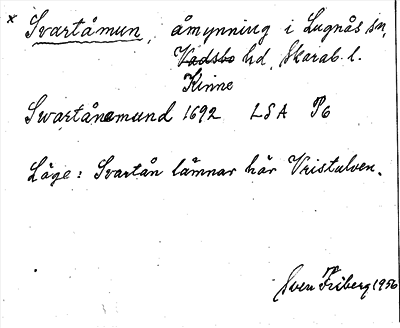 x Svartåmun, åmynning i Lugnås sn,
Vadsbo hd, Skarab. l.
Kinne
Swartånemund 1692 LSA P6
Läge: Svartån lämnar här Vristulven.
Sven Friberg 1956